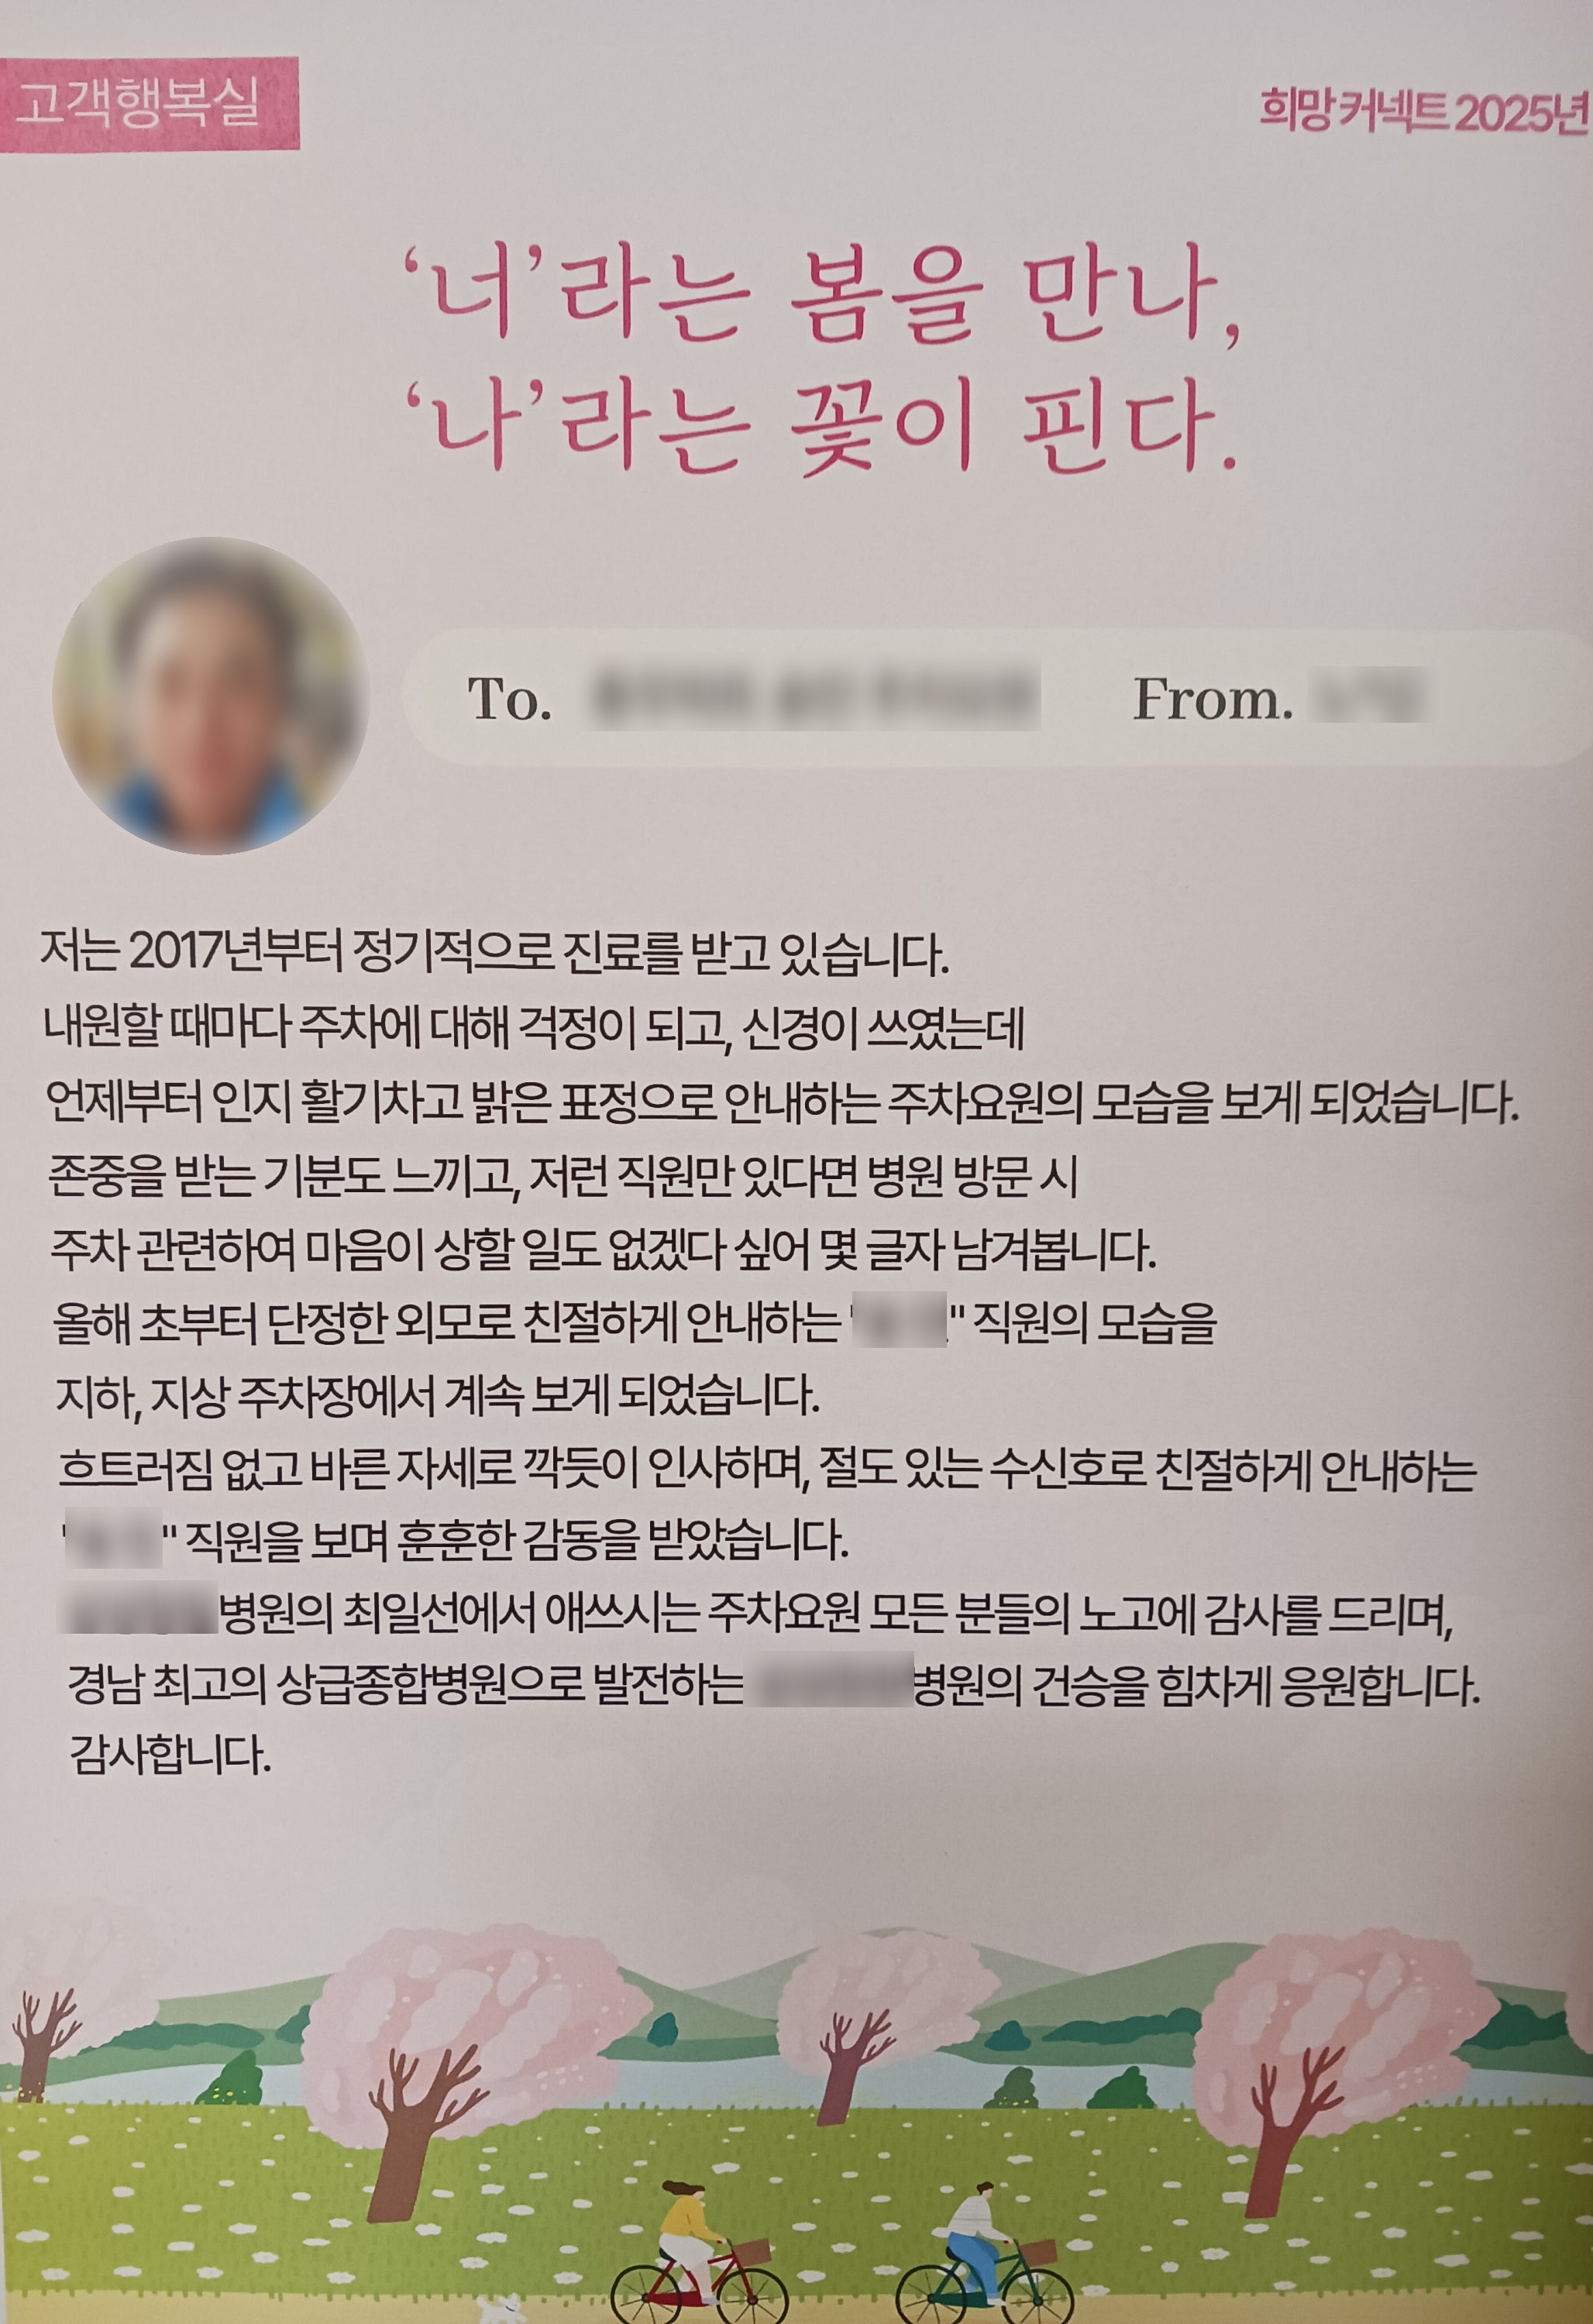 고객행복실
희망 커넥트 2025년
‘너’라는 봄을 만나,
‘나’라는 꽃이 핀다.
To.
From.
저는 2017년부터 정기적으로 진료를 받고 있습니다.
내원할 때마다 주차에 대해 걱정이 되고, 신경이 쓰였는데
언제부터 인지 활기차고 밝은 표정으로 안내하는 주차요원의 모습을 보게 되었습니다.
존중을 받는 기분도 느끼고, 저런 직원만 있다면 병원 방문 시
주차 관련하여 마음이 상할 일도 없겠다 싶어 몇 글자 남겨봅니다.
올해 초부터 단정한 외모로 친절하게 안내하는 " " 직원의 모습을
지하, 지상 주차장에서 계속 보게 되었습니다.
흐트러짐 없고 바른 자세로 깍듯이 인사하며, 절도 있는 수신호로 친절하게 안내하는
" " 직원을 보며 훈훈한 감동을 받았습니다.
병원의 최일선에서 애쓰시는 주차요원 모든 분들의 노고에 감사를 드리며,
경남 최고의 상급종합병원으로 발전하는 병원의 건승을 힘차게 응원합니다.
감사합니다.